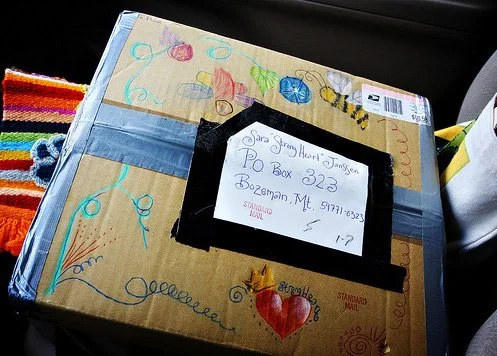 Sara "Strong Heart" Janssen
PO Box 323
Bozeman, Mt. 59771-0323
STANDARD
MAIL
1-7
Strong Heart
STANDARD
MAIL